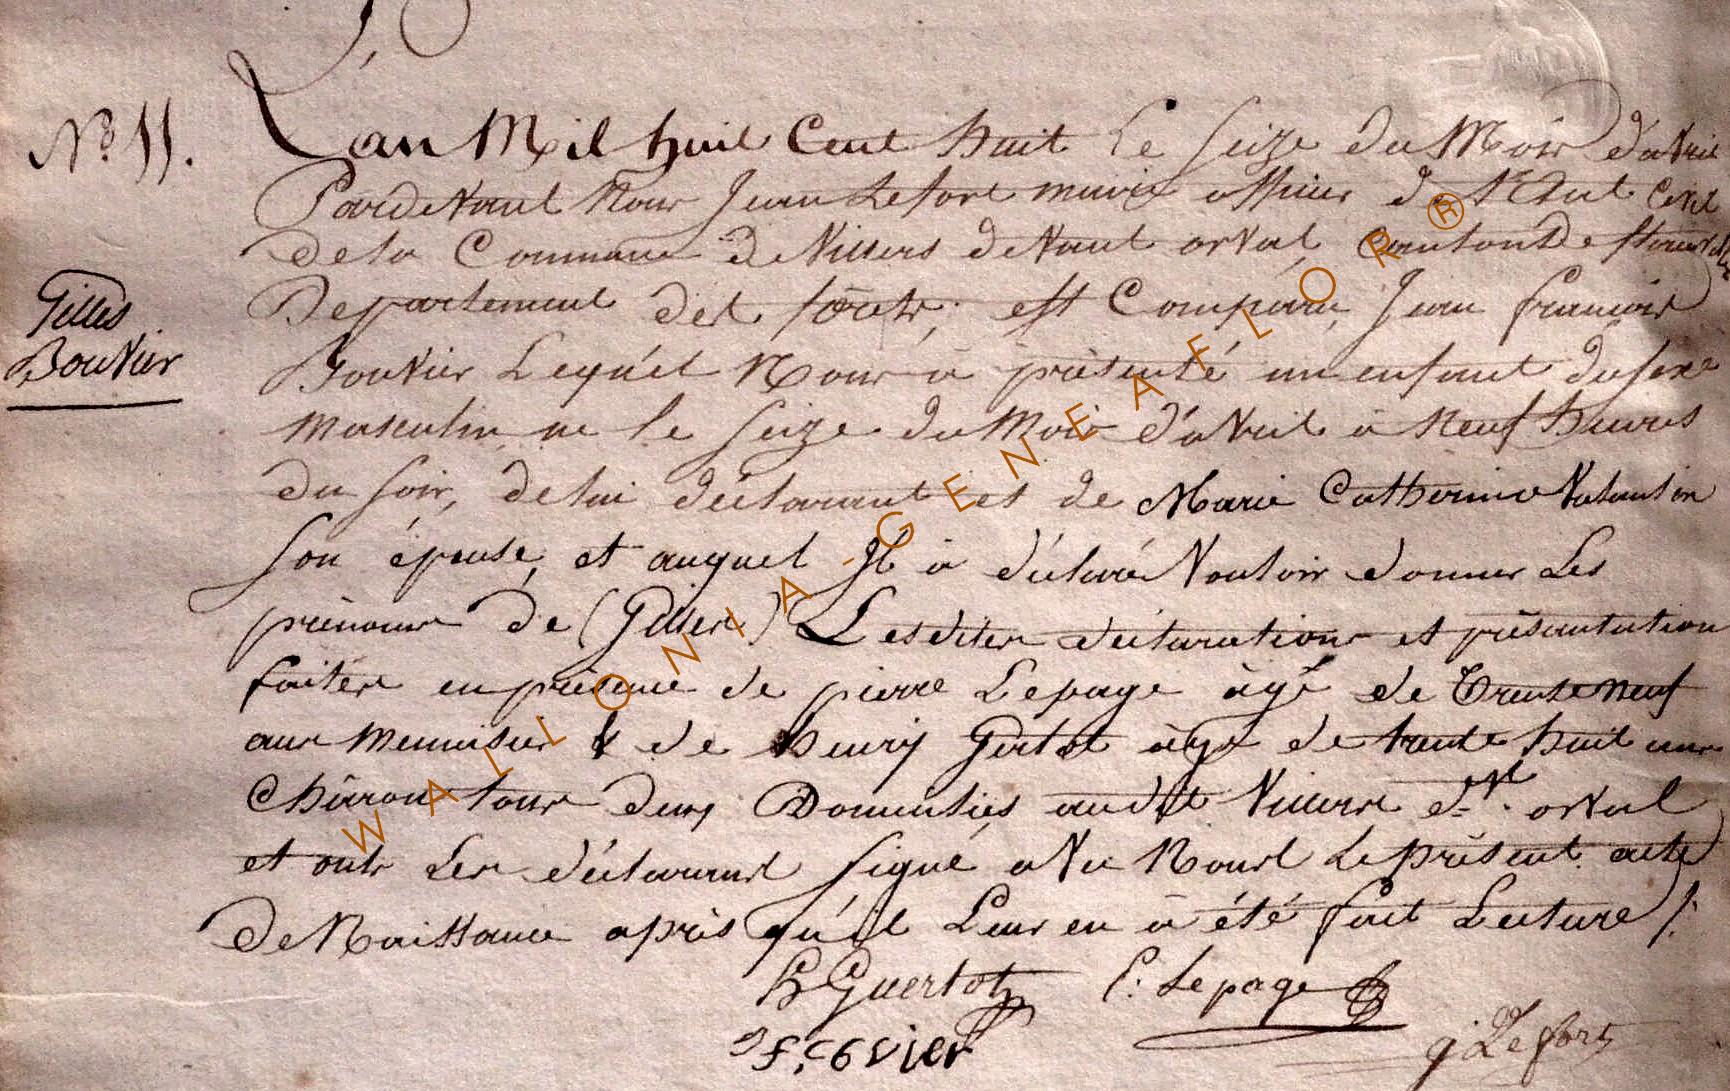 N° 11.
L'an Mil huit Cent huit Le Seize du Mois d'aVril
PardeVant Nous Jean Lefort maire officier de l'Etat Civil
de la Commune de Villers deVant orVal, Canton De florenVille
Departement des forêts; est Comparu, Jean francois
BouVier Lequél Nous à présenté un enfant du sexe
masculin né le Seize du Mois d'aVril à Neuf heures
du soir, de lui déclarant et de Marie Catherine Valantin
Son épouse, et auquel Il à déclaré Vouloir donner Les
prénoms de (Gilles) Lesdites déclarations et présantation
faites en présence de pierre Lepage âgé de Trente neuf
ans Menuisier & de henry Gertot âgé de trente huit ans
Charon tous deux Domiciliés audit Villers dt. Vt. orVal
et ont Les déclarant signé aVec Nous Le présent acte
de Naissance après qu'il Leur en à été fait Lecture /.
Gilles
BouVier
h Guertot P: Lepage
J f BovVier
j Lefort
WALLONIA-GENEAFLOR®